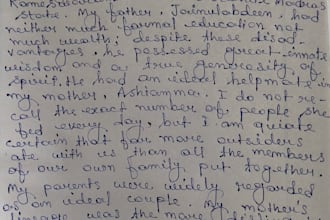 Rameswaram
Madras
state. My father, Jainulabdeen, had
neither much formal education not
much wealth; despite these disad-
vantages, he possessed great innate
wisdom and a true generosity of
spirit. He had an ideal helpmate in
my mother, Ashiamma. I do not re-
call the exact number of people she
fed every day, but I am quiate
certain that far more outsiders
ate with us than all the members
of our own family put together.
My parents were widely regarded
as an ideal couple. My mother's
lineage was the more